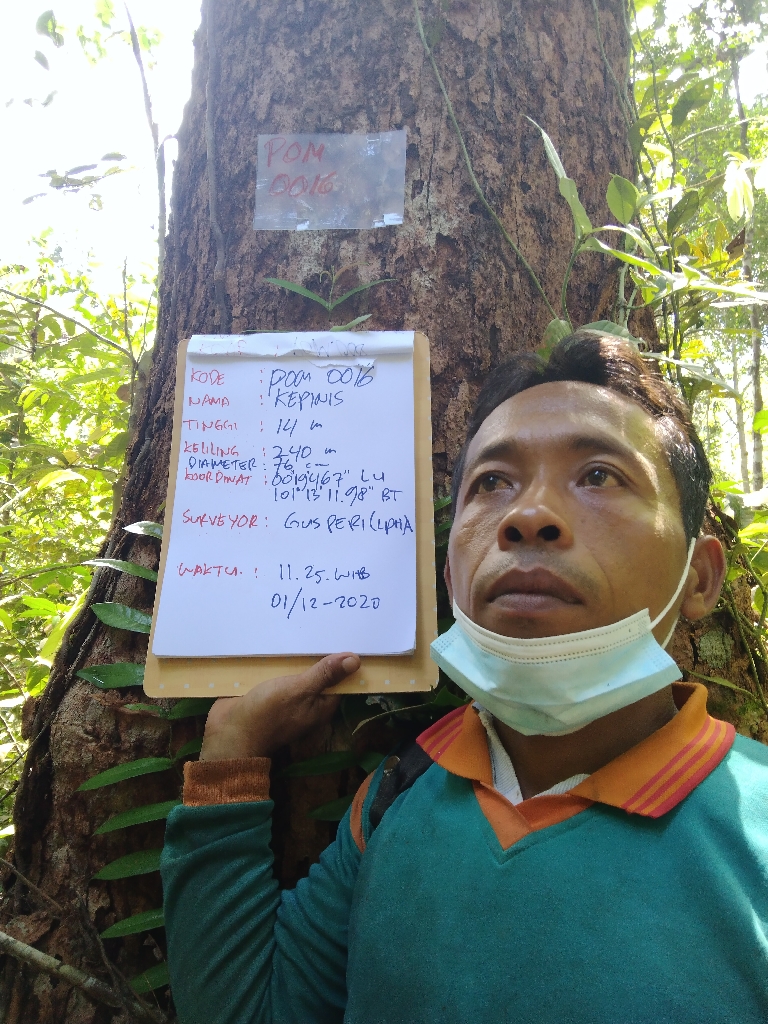 POM
0016
KODE : POM 0016
NAMA : KEPINIS
TINGGI : 14 m
KELILING : 240 m
DIAMETER : 76 cm
KOORDINAT : 00°19'467" LU
101°13'11.98" BT
SURVEYOR : GUSPERI (LPHA
WAKTU : 11.25. WIB
01/12-2020